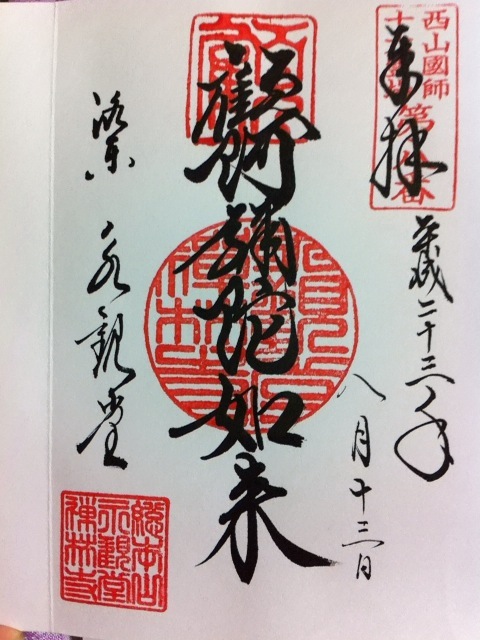 西山國師
奉拝
平成二十三年
八月十三日
顧阿弥陀如来
洛東 永観堂
總本山
永觀堂
禅林寺